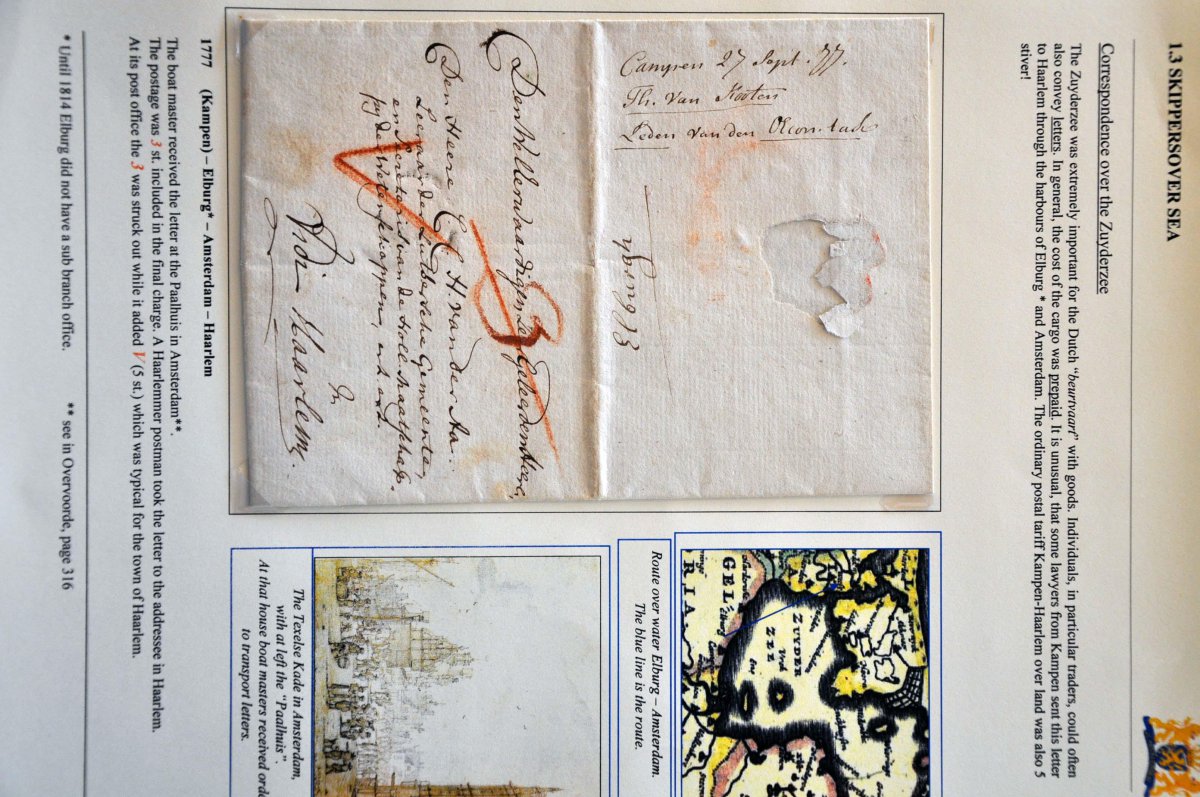 1.3 SKIPPERSOVER SEA
Correspondence over the Zuyderzee
The Zuyderzee was extremely important for the Dutch "beurtvaart" with goods. Individuals, in particular traders, could often
also convey letters. In general, the cost of the cargo was prepaid. It is unusual, that some lawyers from Kampen sent this letter
to Haarlem through the harbours of Elburg * and Amsterdam. The ordinary postal tariff Kampen-Haarlem over land was also 5
stiver!
Campen 27 Sept. 77.
Th. Van Kooten
Leden van den
3
Den Heere C. C. H. van der Aa.
Gemeente,
In
Haarlem.
Route over water Elburg – Amsterdam.
The blue line is the route.
ZUYDER
ZEE
GEL
RIA
The Texelse Kade in Amsterdam,
with at left the "Paalhuis".
At that house boat masters received
to transport letters.
1777 (Kampen) – Elburg* – Amsterdam – Haarlem
The boat master received the letter at the Paalhuis in Amsterdam**.
The postage was 3 st. included in the final charge. A Haarlemmer postman took the letter to the addressee in Haarlem.
At its post office the 3 was struck out while it added V (5 st.) which was typical for the town of Haarlem.
* Until 1814 Elburg did not have a sub branch office. ** see in Overvoorde, page 316